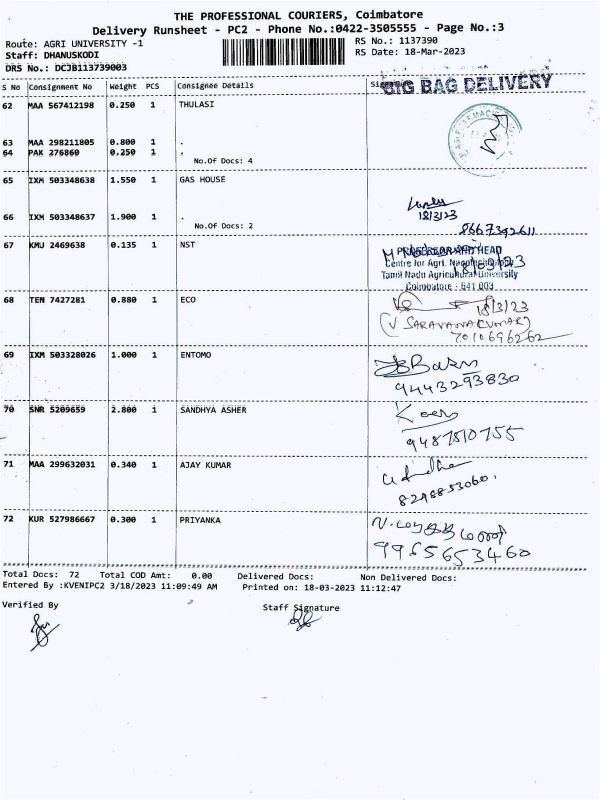 THE PROFESSIONAL COURIERS, Coimbatore
Delivery Runsheet - PC2 - Phone No.:0422-3505555 - Page No.:3
Route: AGRI UNIVERSITY -1
RS No.: 1137390
Staff: DHANUSKODI
RS Date: 18-Mar-2023
DRS No.: DCJB113739003
S No Consignment No Weight PCS Consignee Details
BIG BAG DELIVERY
62 MAA 567412198 0.250 1 THULASI
63 MAA 298211805 0.800 1 .
64 PAK 276860 0.250 1 .
No.Of Docs: 4
65 IXM 503348638 1.550 1 GAS HOUSE
18/3/23
66 IXM 503348637 1.900 1 .
No.Of Docs: 2
8667392611
67 KMU 2469638 0.135 1 NST
PROFESSOR AND HEAD
Centre for Agri.
18/03/23
Tamil Nadu Agricultural University
Coimbatore - 641 003
68 TEN 7427281 0.880 1 ECO
18/3/23
(V SARAVANAKUMAR)
7010696262
69 IXM 503328026 1.000 1 ENTOMO
9443293830
70 SNR 5209659 2.800 1 SANDHYA ASHER
9487810755
71 MAA 299632031 0.340 1 AJAY KUMAR
8248853060.
72 KUR 527986667 0.300 1 PRIYANKA
9965653460
Total Docs: 72 Total COD Amt: 0.00 Delivered Docs: Non Delivered Docs:
Entered By :KVENIPC2 3/18/2023 11:09:49 AM Printed on: 18-03-2023 11:12:47
Verified By
Staff Signature